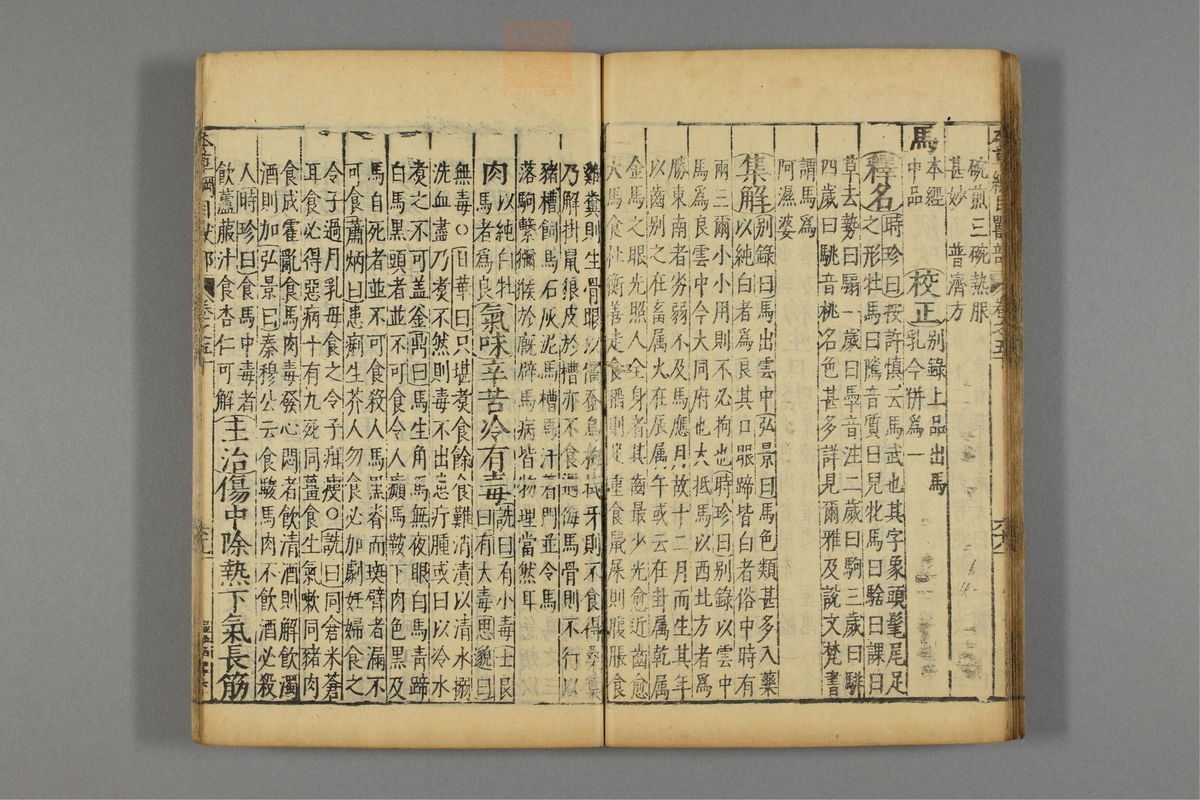 碗煎三碗熱服
甚妙 普濟方
馬 本經中品 校正 別錄上品出馬乳今併爲一
釋名 時珍曰按許慎云馬武也其字象頭髦尾足
之形牡馬曰隲音質曰兒牝馬曰騇曰課曰
草去勢曰騸一歲曰馵音注二歲曰駒三歲曰駣
四歲曰駣音桃名色甚多詳見爾雅及說文梵書
謂馬爲
阿濕婆
集解 別錄曰馬出雲中弘景曰馬色類甚多入藥
以純白者爲良其口眼蹄皆白者俗中時有
兩三爾小小用則不必拘也時珍曰別錄以雲中
馬爲良雲中今大同府也大抵馬以西北方者爲
勝東南者劣弱不及馬應月故十二月而生其年
以齒別之在畜屬火在辰屬午或云在卦屬乾屬
金馬之眼光照人全身者其齒最少光愈近齒愈
大馬食杜衡善走食稻則足重食鼠屎則腹脹食
雞糞則生骨眼以僵蠶烏梅拭牙則不食得桑葉
乃解掛鼠狼皮於槽亦不食遇海馬骨則不行以
豬槽飼馬石灰泥馬槽馬汗着門並令馬
落駒繫獼猴於廐辟馬病皆物理當然耳
肉 以純白牡馬者爲良 氣味辛苦冷有毒 詵曰有小毒士良曰有大毒思邈曰
無毒○日華曰只堪煑食餘食難消漬以清水搦
洗血盡乃煑不然則毒不出患疔腫或曰以冷水
煑之不可蓋釜鼎曰馬生角馬無夜眼白馬青蹄
白馬黑頭者並不可食令人癲馬鞍下肉色黑及
馬自死者並不可食殺人馬黑脊而斑臂者漏不
可食蕭炳曰患痢生芥人勿食必加劇妊婦食之
令子過月乳母食之令子疳瘦○詵曰同倉米蒼
耳食必得惡病十有九死同薑食生氣嗽同豬肉
食成霍亂食馬肉毒發心悶者飲清酒則解飲濁
酒則加弘景曰秦穆公云食駿馬肉不飲酒必殺
人時珍曰食馬中毒者
飲蘆菔汁食杏仁可解 主治傷中除熱下氣長筋